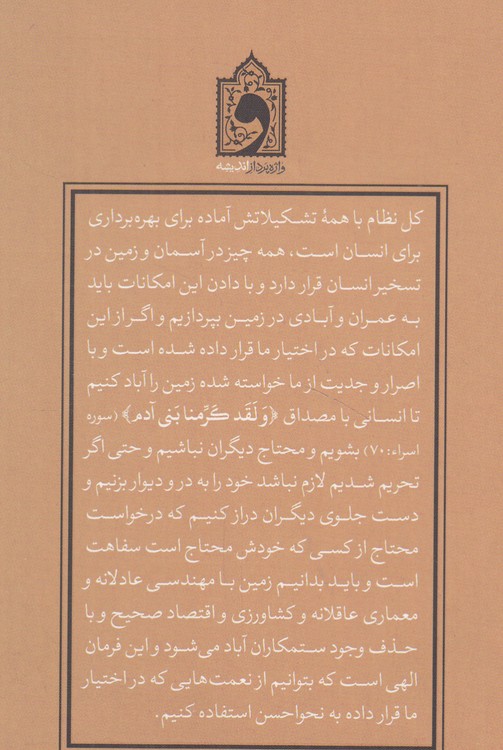 واژه‌پرداز اندیشه
کل نظام با همهٔ تشکیلاتش آماده برای بهره‌برداری
برای انسان است، همه چیز در آسمان و زمین در
تسخیر انسان قرار دارد و با دادن این امکانات باید
به عمران و آبادی در زمین بپردازیم و اگر از این
امکانات که در اختیار ما قرار داده شده است و با
اصرار و جدیت از ما خواسته شده زمین را آباد کنیم
تا انسانی با مصداق ﴿وَ لَقَد کَرَّمنا بَنی آدم﴾ (سوره
اسراء: ۷۰) بشویم و محتاج دیگران نباشیم و حتی اگر
تحریم شدیم لازم نباشد خود را به در و دیوار بزنیم و
دست جلوی دیگران دراز کنیم که درخواست
محتاج از کسی که خودش محتاج است سفاهت
است و باید بدانیم زمین با مهندسی عادلانه و
معماری عاقلانه و کشاورزی و اقتصاد صحیح و با
حذف وجود ستمکاران آباد می‌شود و این فرمان
الهی است که بتوانیم از نعمت‌هایی که در اختیار
ما قرار داده به نحو احسن استفاده کنیم.